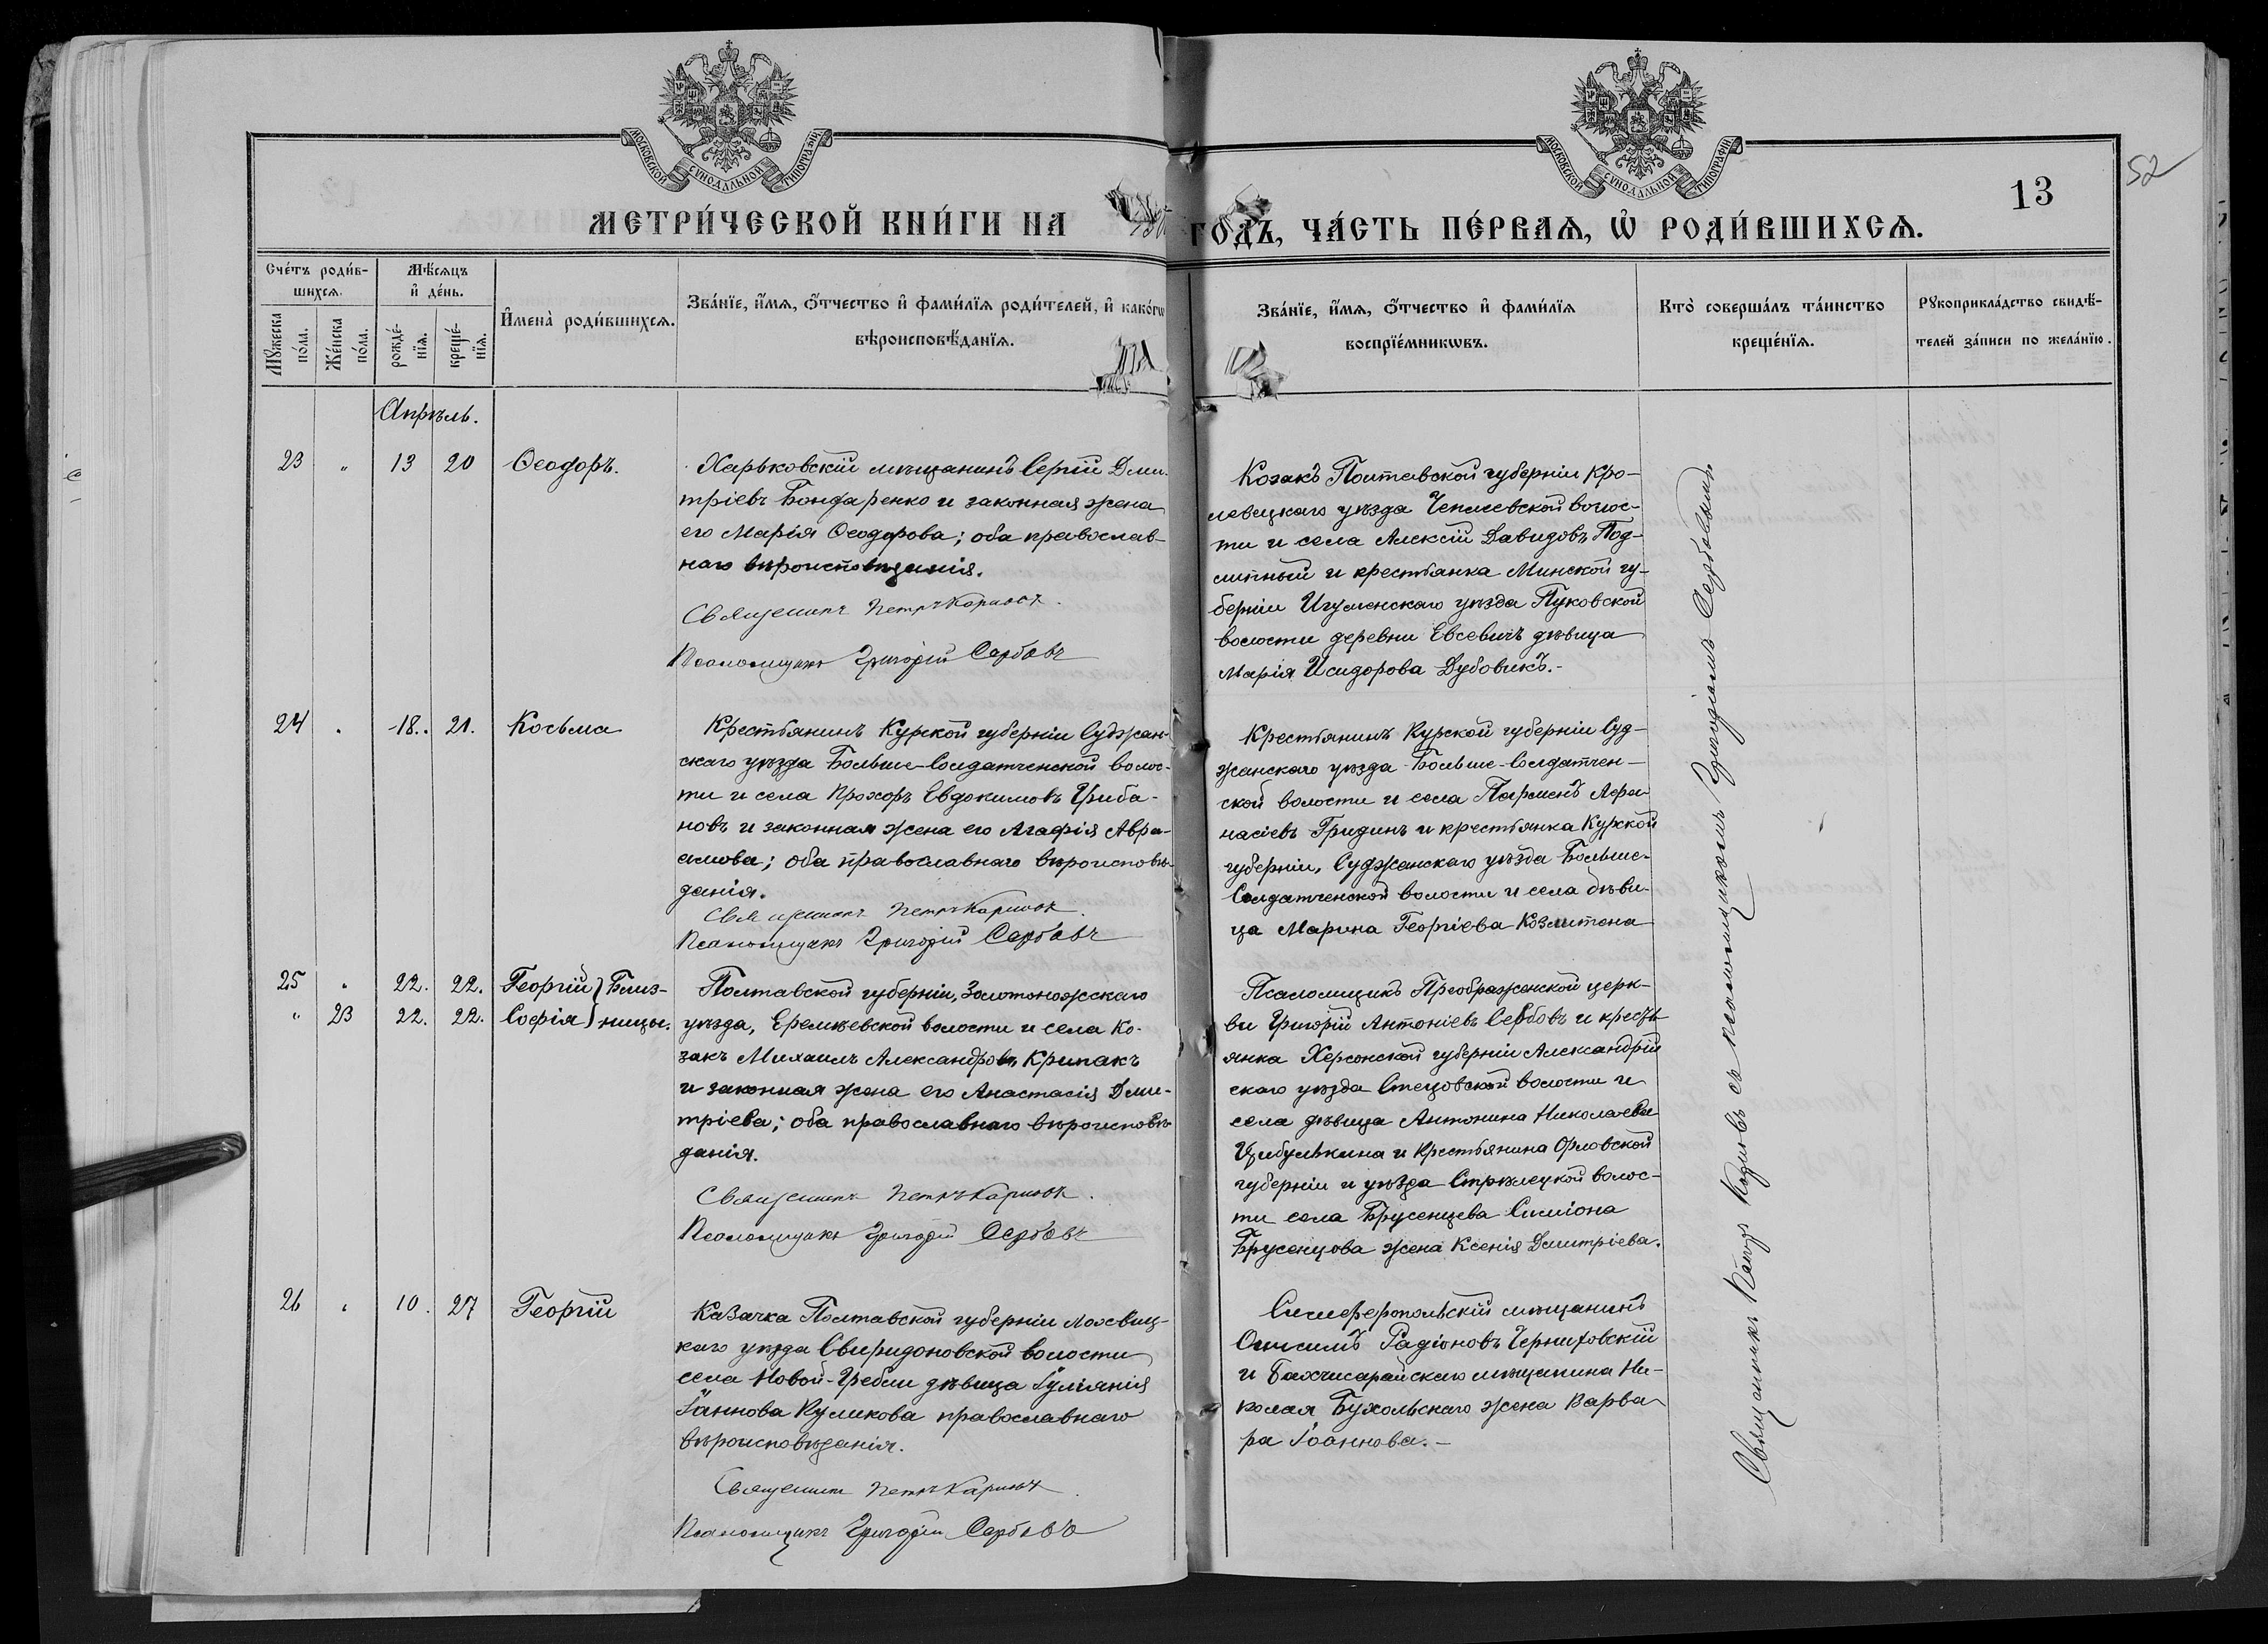 МОСКОВСКОЙ СУНОДАЛЬНОЙ ТИПОГРАФІИ
МОСКОВСКОЙ СУНОДАЛЬНОЙ ТИПОГРАФІИ
52
13
МЕТРИ́ЧЕСКОЙ КНИ́ГИ НА ГОДЪ, ЧА́СТЬ ПЕ́РВАѦ, Ѡ҆ РОДИ́ВШИХСѦ.
Сче́тъ роди́в-
шихсѧ.
Мѣ́сѧцъ
и҆ де́нь.
Мꙋ́жеска
по́ла.
Же́нска
по́ла.
рожде́-
нїѧ.
креще́-
нїѧ.
И҆мена̀ роди́вшихсѧ.
Зва́нїе, и҆́мѧ, ѻ҆́тчество и҆ фами́лїѧ роди́телей, и҆ како́гѡ
вѣроисповѣ́данїѧ.
Зва́нїе, и҆́мѧ, ѻ҆́тчество и҆ фами́лїѧ
воспрїе́мникѡвъ.
Кто̀ соверша́лъ та́инство
креще́нїѧ.
Рꙋкоприкла́дство свидѣ́-
телей за́писи по жела́нїю.
Апрѣль.
23 " 13 20 Ѳеодоръ.
Харьковскій мѣщанинъ Сергій Дми-
тріевъ Бондаренко и законная жена
его Марія Ѳеодорова; оба православ-
наго вѣроисповѣданія.
Священникъ Петръ
Псаломщикъ Григорій Сербовъ
Козакъ Полтавской губерніи Кро-
левецкаго уѣзда волос-
ти и села Алексій Давидовъ Под-
липный и крестьянка Минской гу-
берніи Игуменскаго уѣзда Пуковской
волости деревни Евсевичъ дѣвица
Марія Исидорова Дубовикъ.-
24 " 18. 21. Косьма
Крестьянинъ Курской губерніи Суджан-
скаго уѣзда Больше-Солдатченской волос-
ти и села Прохоръ Евдокимовъ Гриба-
новъ и законная жена его Агафія Авра-
амова; оба православнаго вѣроисповѣ-
данія.
Священникъ Петръ
Псаломщикъ Григорій Сербовъ
Крестьянинъ Курской губерніи Суд-
жанскаго уѣзда Больше-Солдатчен-
ской волости и села Парменъ Афа-
насіевъ Гридинъ и крестьянка Курской
губерніи, Суджанскаго уѣзда Больше-
Солдатченской волости и села дѣви-
ца Марина Георгіева
25 " 22. 22. Георгій } Близ-
" 23 22. 22. Софія } ницы.
Полтавской губерніи, Золотоножскаго
уѣзда, Еремѣевской волости и села Ко-
закъ Михаилъ Александровъ Крипакъ
и законная жена его Анастасія Дми-
тріева; оба православнаго вѣроисповѣ-
данія.
Священникъ Петръ
Псаломщикъ Григорій Сербовъ
Псаломщикъ Преображенской церк-
ви Григорій Антоніевъ Сербовъ и кресть-
янка Херсонской губерніи Александрій
скаго уѣзда Стецовской волости и
села дѣвица Антонина Николаева
Цибулькина и крестьянина Орловской
губерніи и уѣзда Стрѣлецкой волос-
ти села Брусенцева Симіона
Брусенцова жена Ксенія Дмитріева.
26 " 10. 27 Георгій
Казачка Полтавской губерніи Лохвиц-
каго уѣзда Свиридоновской волости
села Новой-Гребли дѣвица Іуліанія
Іоаннова Куликова православнаго
вѣроисповѣданія.
Священникъ Петръ
Псаломщикъ Григорій Сербовъ
Симферопольскій мѣщанинъ
Онисимъ Радіоновъ Черниховскій
и Бахчисарайскаго мѣщанина Ни-
колая Бухольскаго жена Варва-
ра Іоаннова.-
Священникъ Петръ съ псаломщикомъ Григоріемъ Сербовымъ